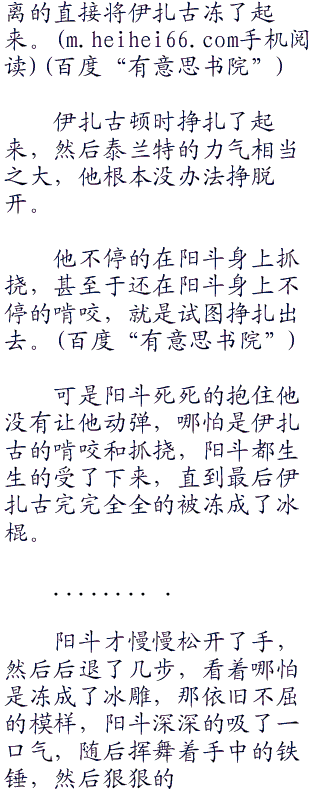 离的直接将伊扎古冻了起
来。(m.heihei66.com手机阅
读)(百度“有意思书院”)
伊扎古顿时挣扎了起
来，然后泰兰特的力气相当
之大，他根本没办法挣脱
开。
他不停的在阳斗身上抓
挠，甚至于还在阳斗身上不
停的啃咬，就是试图挣扎出
去。(百度“有意思书院”)
可是阳斗死死的抱住他
没有让他动弹，哪怕是伊扎
古的啃咬和抓挠，阳斗都生
生的受了下来，直到最后伊
扎古完完全全的被冻成了冰
棍。
........ .
阳斗才慢慢松开了手，
然后后退了几步，看着哪怕
是冻成了冰雕，那依旧不屈
的模样，阳斗深深的吸了一
口气，随后挥舞着手中的铁
锤，然后狠狠的